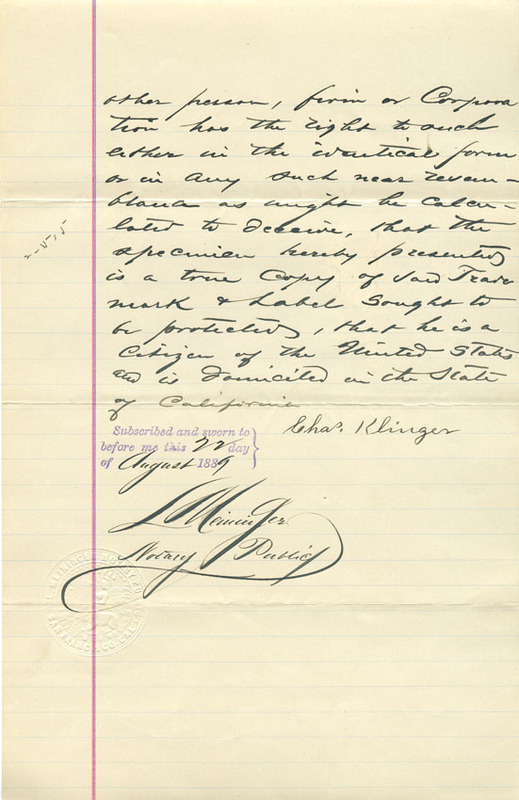 other person, firm or Corpora
tion has the right to such
either in the identical form
or in any such near resem-
blance as might be calcu-
lated to deceive, that the
specimen hereby presented
is a true Copy of said Trade
mark & Label Sought to
be protected, that he is a
Citizen of the United States
and is domiciled in the State
of California
Chas. Klinger
Subscribed and sworn to
before me this 22 day
of August 1889
Notary Public